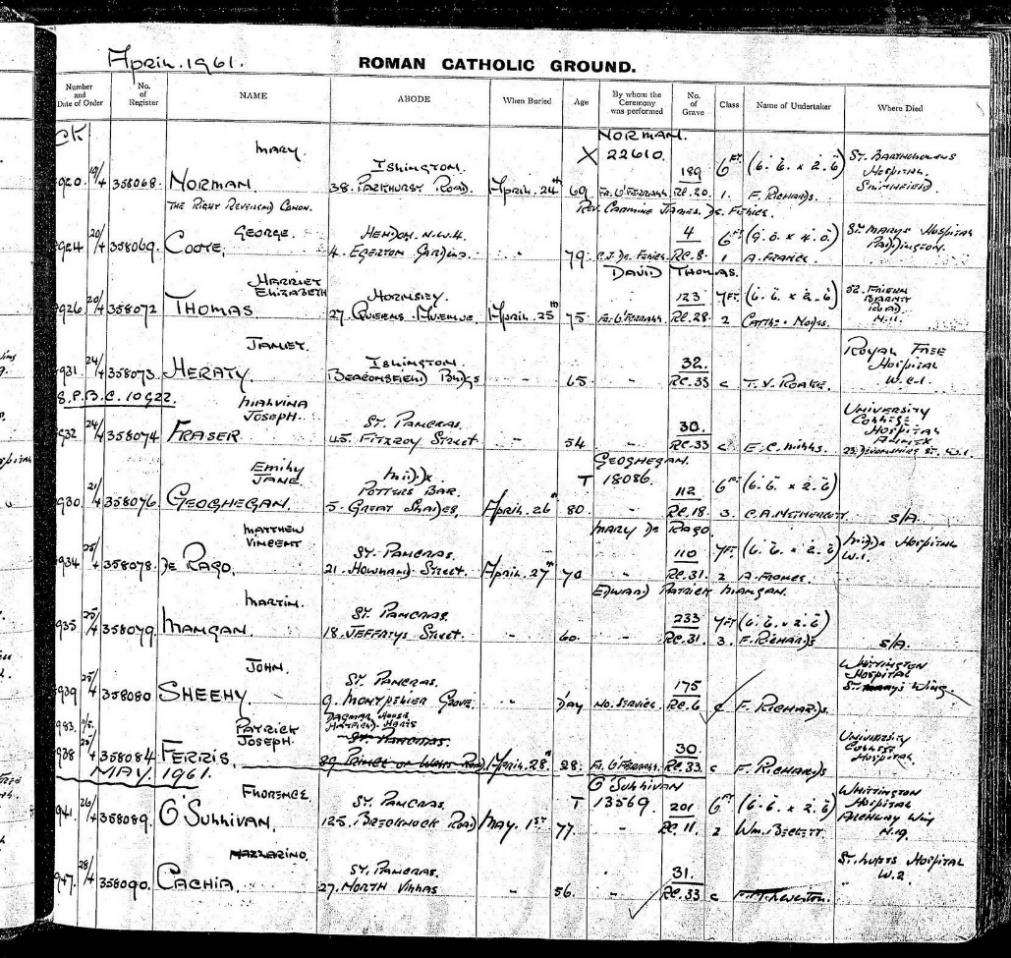 April. 1961.
ROMAN CATHOLIC GROUND.
Number and Date of Order
No. of Register
NAME
ABODE
When Buried
Age
By whom the Ceremony was performed
No. of Grave
Class
Name of Undertaker
Where Died
CK
MARY. NORMAN.
ISLINGTON. X 22610. 189 6FT. (6.6. x 2.6) ST. BARTHOLOMEWS HOSPITAL SMITHFIELD.
920. 19/4 358068. NORMAN. 38. PARKHURST ROAD. April. 24th 69 Fr. O'FERRALL RC.20. 1. F. RICHARDS.
THE RIGHT REVEREND CANON. REV. CARMINE JAMES DE FELICE.
GEORGE. HENDON. N.W.4. 4 6FT (9.0 x 4.0) ST. MARYS HOSPITAL PADDINGTON.
924 20/4 358069. COOTE. 4. EGERTON GARDENS. " 79 C.J. De Felice. RC.8. 1 A. FRANCE.
HARRIET ELIZABETH DAVID THOMAS.
HORNSEY. 123 7FT. (6.6. x 2.6) 52. FRIERN BARNET ROAD. N.11.
926 20/4 358072 THOMAS. 27. QUEENS AVENUE. April. 25th 75 Fr. O'FERRALL RC.28 2
JANET. ISLINGTON. 32. ROYAL FREE HOSPITAL W.C.1.
931. 24/4 358073. HERATY. BEACONSFIELD Bldgs " 65 " RC.33 c T. V. ROAKE.
S.P.B.C. 10922.
MALVINA JOSEPH. ST. PANCRAS. 30. UNIVERSITY COLLEGE HOSPITAL ANNEX
932 24/4 358074 FRASER 45. FITZROY STREET " 54 " RC.33 c E. C. 23 DEVONSHIRE ST. W.1.
EMILY JANE. GEOGHEGAN.
Middx POTTERS BAR. T 18086. 112 6FT (6.6. x 2.6)
930 21/4 358076. GEOGHEGAN. 5. GREAT SLADES. April. 26th 80. " RC.18 3. C.A. NETHERCOTT. S/A.
MATTHEW VINCENT MARY DE RAGO.
ST. PANCRAS. 110 7FT. (6.6. x 2.6) Middx HOSPITAL W.1.
934 25/4 358078. DE RAGO. 21. HOWLAND STREET. April. 27th 70 " RC.31. 2 A. FRANCE.
MARTIN. EDWARD PATRICK MANGAN.
ST. PANCRAS. 233 7FT (6.6. x 2.6)
935 25/4 358079. MANGAN. 18. JEFFREYS STREET. " 60. " RC.31. 3. F. RICHARDS S/A.
JOHN. ST. PANCRAS. 175 WHITTINGTON HOSPITAL ST. MARYS WING.
939 25/4 358080 SHEEHY 9. MONTPELIER GROVE. " DAY NO. SERVICE. RC.6 c F. RICHARDS.
983. PATRICK JOSEPH. DAGMAR HOUSE HATFIELD. HERTS
ST. PANCRAS. 30 UNIVERSITY COLLEGE HOSPITAL.
938 25/4 358084 FERRIS. 89 PRINCE OF WALES ROAD April. 28th 28. Fr. O'FERRALL RC.33. c F. RICHARDS
MAY. 1961.
FLORENCE. O'SULLIVAN
ST. PANCRAS. T 13569. 201 6FT (6.6. x 2.6) WHITTINGTON HOSPITAL ARCHWAY WING N.19.
941. 26/4 358089. O'SULLIVAN. 125. BRECKNOCK ROAD May. 1st 77. " RC.11. 2 WM. BECKETT.
NAZZARINO. ST. PANCRAS. 31. ST. LUKES HOSPITAL W.2.
947. 28/4 358090. CACHIA. 27. NORTH VILLAS " 56. " RC.33 c